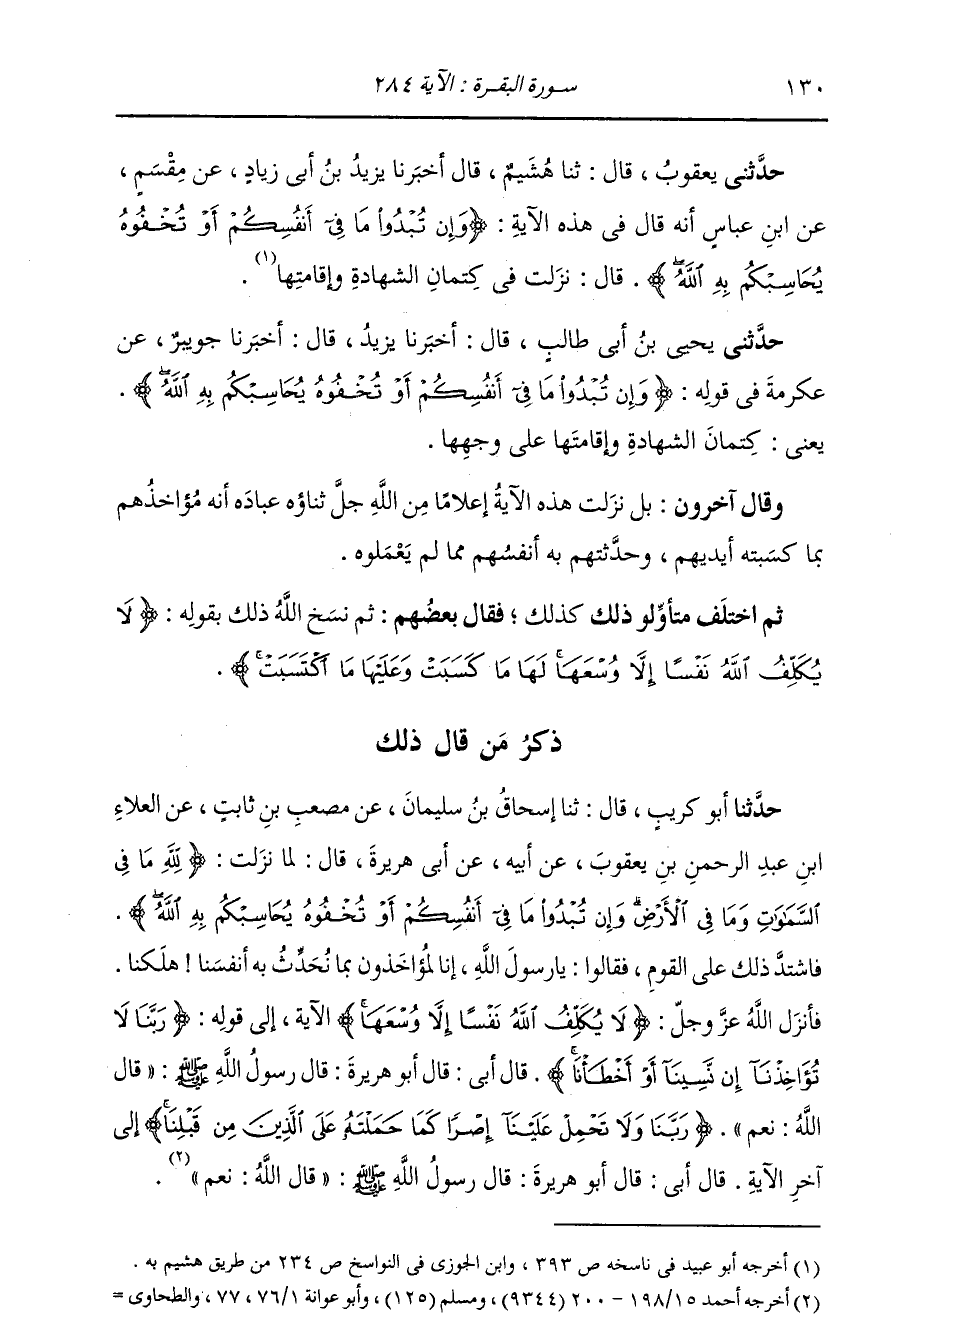 ١٣٠ سورة البقرة : الآية ٢٨٤
حدَّثنى يعقوبُ ، قال : ثنا هُشَيمٌ ، قال أخبَرنا يزيدُ بنُ أبى زيادٍ ، عن مِقْسَمٍ ،
عن ابنِ عباسٍ أنه قال فى هذه الآيةِ : ﴿وَإِن تُبْدُوا۟ مَا فِىٓ أَنفُسِكُمْ أَوْ تُخْفُوهُ
يُحَاسِبْكُم بِهِ ٱللَّهُ ۖ﴾ . قال : نزَلت فى كِتمانِ الشهادةِ وإقامتِها(١) .
حدَّثنى يحيى بنُ أبى طالبٍ ، قال : أخبَرنا يزيدُ ، قال : أخبَرنا جويبرٌ ، عن
عكرمةَ فى قولِه : ﴿وَإِن تُبْدُوا۟ مَا فِىٓ أَنفُسِكُمْ أَوْ تُخْفُوهُ يُحَاسِبْكُم بِهِ ٱللَّهُ ۖ﴾ .
يعنى : كِتمانَ الشهادةِ وإقامتَها على وجهِها .
وقال آخرون : بل نزَلت هذه الآيةُ إعلامًا مِن اللَّهِ جلَّ ثناؤه عبادَه أنه مُؤاخذُهم
بما كسَبته أيديهم ، وحدَّثتهم به أنفسُهم مما لم يَعْمَلوه .
ثم اختلَف متأوِّلو ذلك كذلك ؛ فقال بعضُهم : ثم نسَخ اللَّهُ ذلك بقولِه : ﴿لَا
يُكَلِّفُ ٱللَّهُ نَفْسًا إِلَّا وُسْعَهَا ۚ لَهَا مَا كَسَبَتْ وَعَلَيْهَا مَا ٱكْتَسَبَتْ ۚ﴾ .
ذكرُ مَن قال ذلك
حدَّثنا أبو كريبٍ ، قال : ثنا إسحاقُ بنُ سليمانَ ، عن مصعبِ بنِ ثابتٍ ، عن العلاءِ
ابنِ عبدِ الرحمنِ بنِ يعقوبَ ، عن أبيه ، عن أبى هريرةَ ، قال : لما نزَلت : ﴿لِلَّهِ مَا فِى
ٱلسَّمَٰوَٰتِ وَمَا فِى ٱلْأَرْضِ ۗ وَإِن تُبْدُوا۟ مَا فِىٓ أَنفُسِكُمْ أَوْ تُخْفُوهُ يُحَاسِبْكُم بِهِ ٱللَّهُ ۖ﴾ .
فاشتدَّ ذلك على القومِ ، فقالوا : يارسولَ اللَّهِ ، إنا لمُؤاخَذون بما نُحَدِّثُ به أنفسَنا ! هلَكنا .
فأنزَل اللَّهُ عزَّ وجلّ : ﴿لَا يُكَلِّفُ ٱللَّهُ نَفْسًا إِلَّا وُسْعَهَا ۚ﴾ الآية ، إلى قولِه : ﴿رَبَّنَا لَا
تُؤَاخِذْنَآ إِن نَّسِينَآ أَوْ أَخْطَأْنَا ۚ﴾ . قال أبى : قال أبو هريرةَ : قال رسولُ اللَّهِ ﷺ : « قال
اللَّهُ : نعم » . ﴿رَبَّنَا وَلَا تَحْمِلْ عَلَيْنَآ إِصْرًا كَمَا حَمَلْتَهُۥ عَلَى ٱلَّذِينَ مِن قَبْلِنَا ۚ﴾ إلى
آخرِ الآيةِ . قال أبى : قال أبو هريرةَ : قال رسولُ اللَّهِ ﷺ : « قال اللَّهُ : نعم »(٢) .
(١) أخرجه أبو عبيد فى ناسخه ص ٣٩٣ ، وابن الجوزى فى النواسخ ص ٢٣٤ من طريق هشيم به .
(٢) أخرجه أحمد ١٩٨/١٥ – ٢٠٠ (٩٣٤٤) ، ومسلم (١٢٥) ، وأبو عوانة ٧٦/١ ، ٧٧ ، والطحاوى =